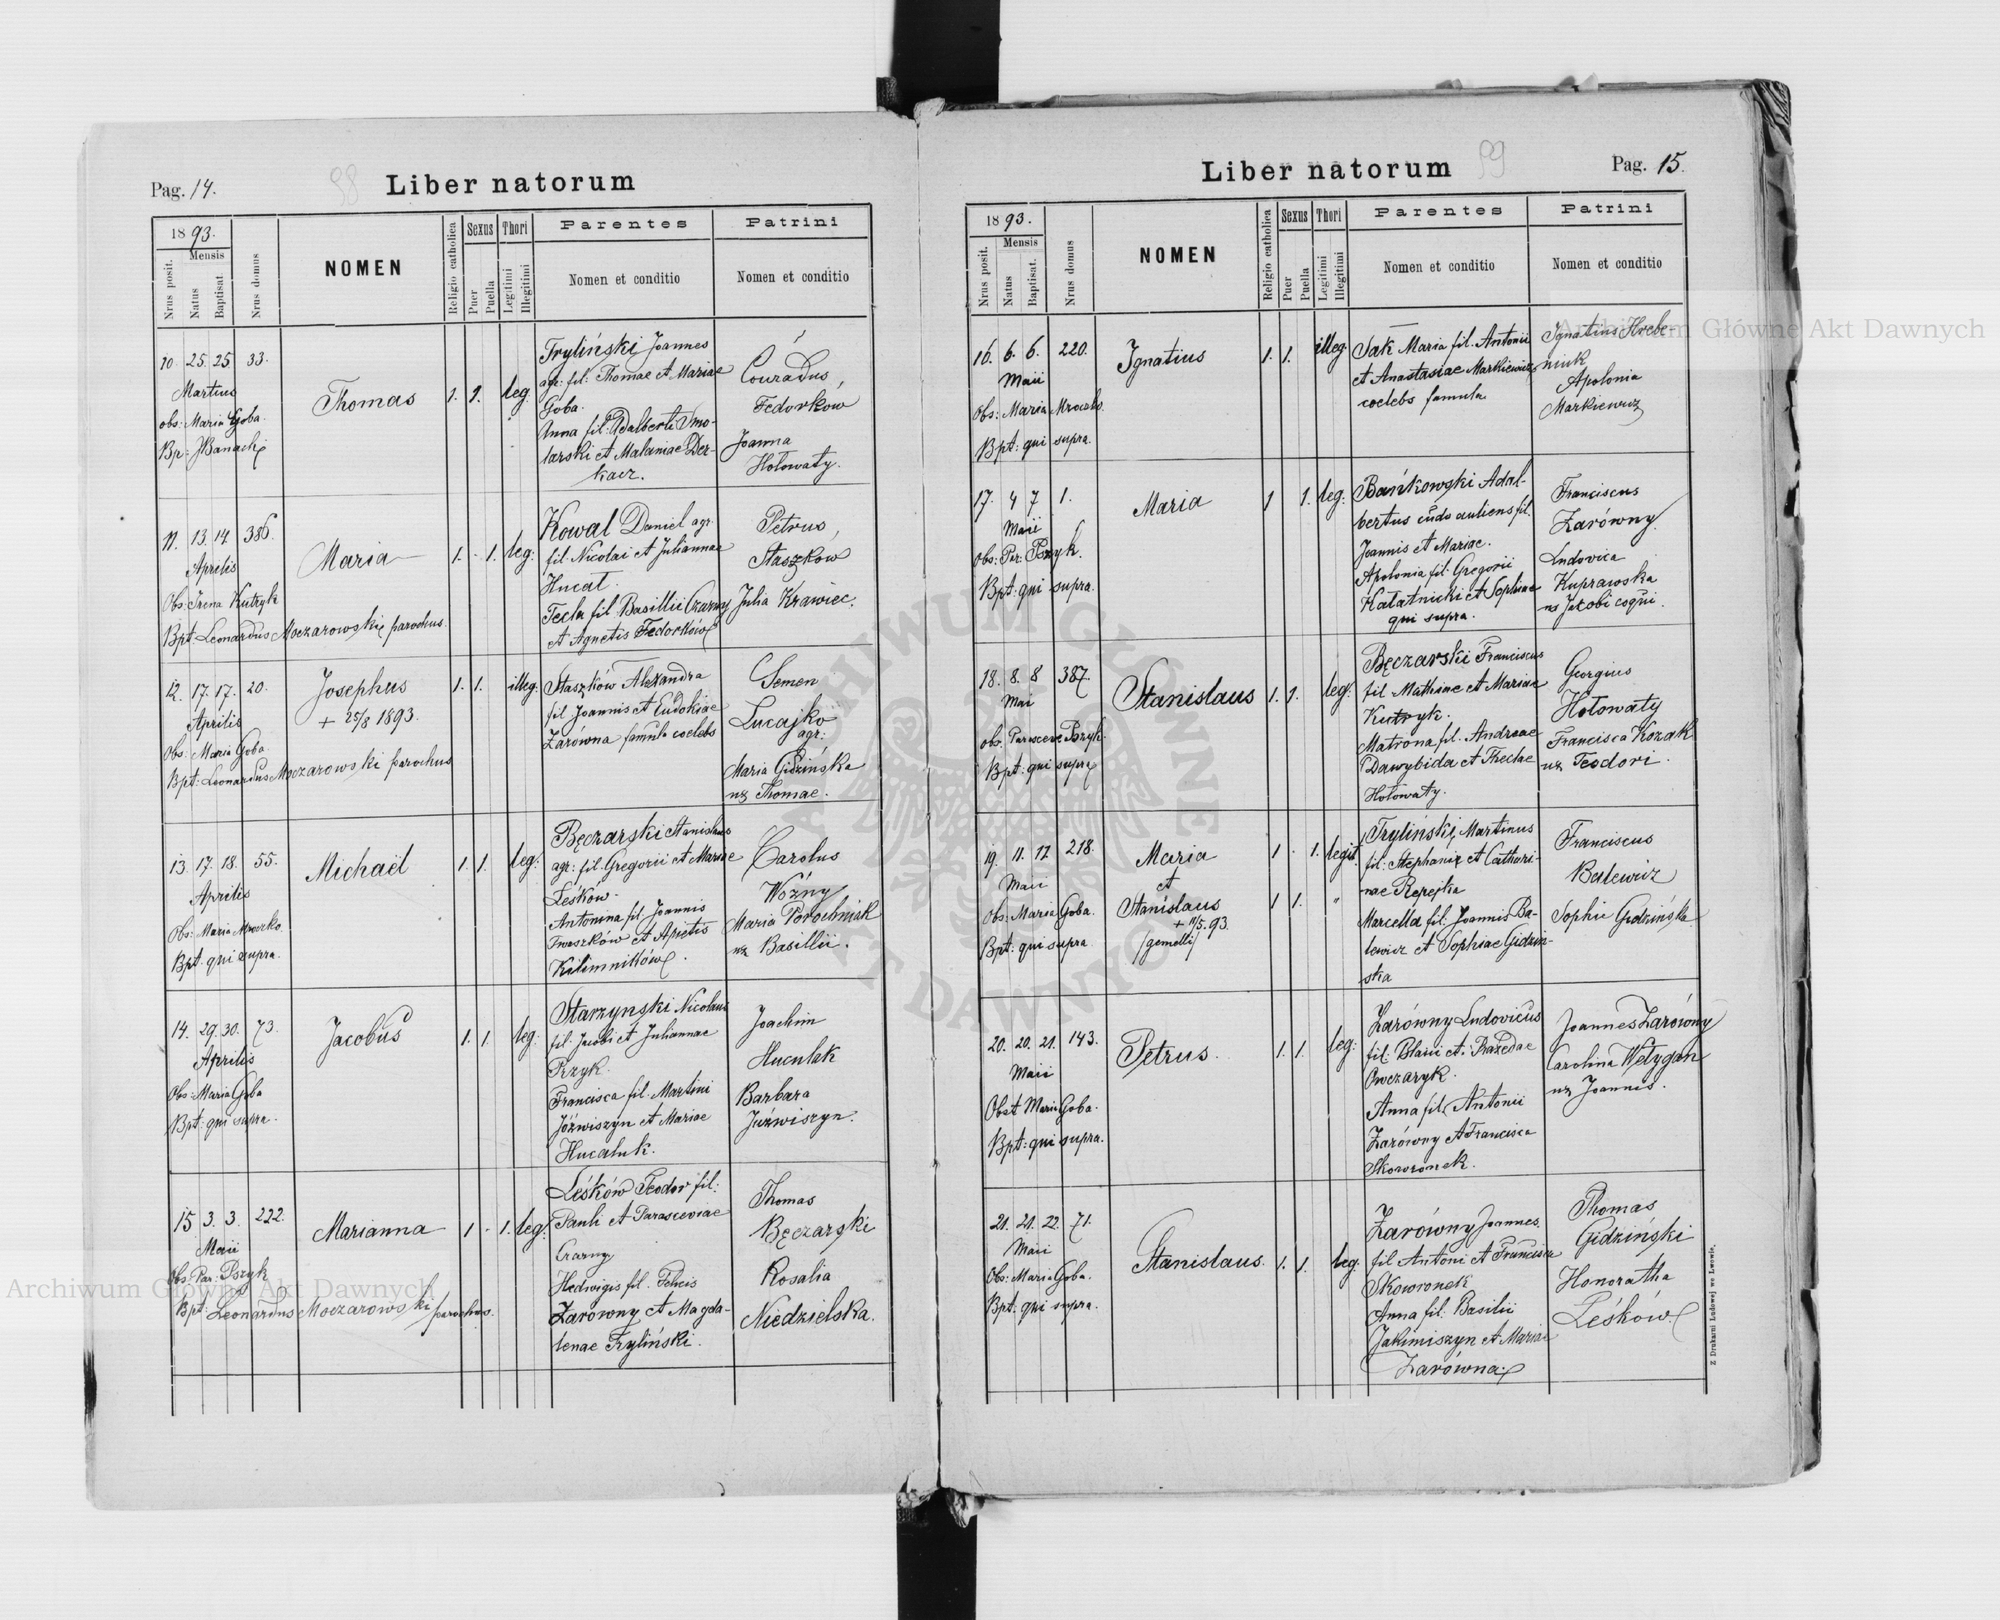 Pag. 14.
Liber natorum
1893.
Mensis
Nrus posit.
Natus
Baptisat.
Nrus domus
NOMEN
Religio catholica
Sexus
Puer
Puella
Thori
Legitimi
Illegitimi
Parentes
Nomen et conditio
Patrini
Nomen et conditio
10. 25. 25. 33.
Martius
obs: Maria Goba.
Bp: JBanach
Thomas
1. 1. leg.
Tryliński Joannes
agr: fil: Thomae et Mariae
Goba.
Anna fil: Adalberti Smo-
larski et Malaniae Der-
kacz.
Conradus
Fedorków
Joanna
Hołowaty.
11. 13. 14. 386.
Aprilis
Obs: Irena Kutryk
Bpt: Leonardus Moczarowski parochus.
Maria
1. - 1. leg:
Kowal Daniel agr.
fil. Nicolai et Juliannae
Hucał.
Tecla fil. Basillii Czarny
et Agnetis Fedorków
Petrus
Staszków
Julia Krawiec.
12. 17. 17. 20.
Aprilis
Obs: Maria Goba.
Bpt: Leonardus Moczarowski parochus
Josephus
+ 25/8 1893.
1. 1. illeg.
Staszków Alexandra
fil. Joannis et Eudokiae
Zarówna famula coelebs
Semen
Lucajko
agr:
Maria Gidzińska
ux Thomae.
13. 17. 18. 55.
Aprilis
Obs: Maria Mroczko.
Bpt: qui supra.
Michaël
1. 1. leg.
Bęczarski Stanislaus
agr: fil. Gregorii et Mariae
Leśków.
Antonina fil. Joannis
Iwaszków et Agnetis
Kilimników.
Carolus
Woźny
Maria Porochniak
ux Basillii.
14. 29. 30. 73.
Aprilis
Obs: Maria Goba
Bpt: qui supra.
Jacobus
1. 1. leg.
Starzynski Nicolaus
fil. Jacobi et Juliannae
Pszyk.
Francisca fil. Martini
Józwiszyn et Mariae
Hucaluk.
Joachim
Huculak
Barbara
Józwiszyn.
15. 3. 3. 222.
Maii
Obs: Par: Pszyk
Bpt: Leonardus Moczarowski parochus.
Marianna
1 - 1. leg.
Leśków Teodor fil:
Pauli et Parasceviae
Czarny
Hedwigis fil. Felicis
Zarówny et Magda-
lenae Tryliński.
Thomas
Bęczarski
Rosalia
Niedzielska.
Liber natorum
Pag. 15.
1893.
Mensis
Nrus posit.
Natus
Baptisat.
Nrus domus
NOMEN
Religio catholica
Sexus
Puer
Puella
Thori
Legitimi
Illegitimi
Parentes
Nomen et conditio
Patrini
Nomen et conditio
16. 6. 6. 220.
Maii
Obs: Maria Mroczko.
Bpt: qui supra.
Ignatius
1. 1. illeg.
Sak Maria fil. Antonii
et Anastasiae Markiewicz
coelebs famula
Ignatius Hrebe-
niuk
Apolonia
Markiewicz
17. 4 7 1.
Maii
Obs: Par. Pszyk.
Bpt: qui supra.
Maria
1 1. leg.
Bańkowski Adal-
bertus
fil.
Joannis et Mariae.
Apolonia fil. Gregorii
Kałatnicki et Sophiae
qui supra.
Franciscus
Zarówny.
Ludovica
Kuprawska
ux Jakobi coqui.
18. 8. 8 387.
Mai
obs. Parasceve Pszyk.
Bpt: qui supra
Stanislaus
1. 1. leg.
Bęczarski Franciscus
fil Mathiae et Mariae
Kutryk.
Matrona fil. Andreae
Dawybida et Theclae
Hołowaty.
Georgius
Hołowaty
Francisca Kozak
ux Teodori.
19. 11. 11 218.
Maii
Obs: Maria Goba.
Bpt: qui supra
Maria
et
Stanislaus
+ 11/5. 93.
/gemelli/
1 . 1. legit.
1 1. "
Tryliński Martinus
fil: Stephani et Cathari-
nae Repejka
Marcella fil: Joannis Ba-
lewicz et Sophiae Gidzin-
ska
Franciscus
Balewicz
Sophie Gidzińska
20. 20. 21. 143.
Maii
Obst Maria Goba.
Bpt: qui supra.
Petrus.
1. 1. leg:
Zarówny Ludovicus
fil: Blasii et
Owczaryk.
Anna fil. Antonii
Zarówny et Francisca
Skowronek.
Joannes Zarówny
Carolina Wełygan
ux Joannis.
21. 21. 22. 71.
Maii
Obs: Maria Goba.
Bpt: qui supra.
Stanislaus.
1. 1. leg.
Zarówny Joannes
fil Antoni et Francisca
Skowronek
Anna fil: Basilii
Jakimiszyn et Mariae
Zarówna.
Thomas
Gidziński
Honoratha
Leśków
Z Drukarni Ludowej we Lwowie.
Archiwum Główne Akt Dawnych
Archiwum Główne Akt Dawnych
ARCHIWUM GŁÓWNE AKT DAWNYCH